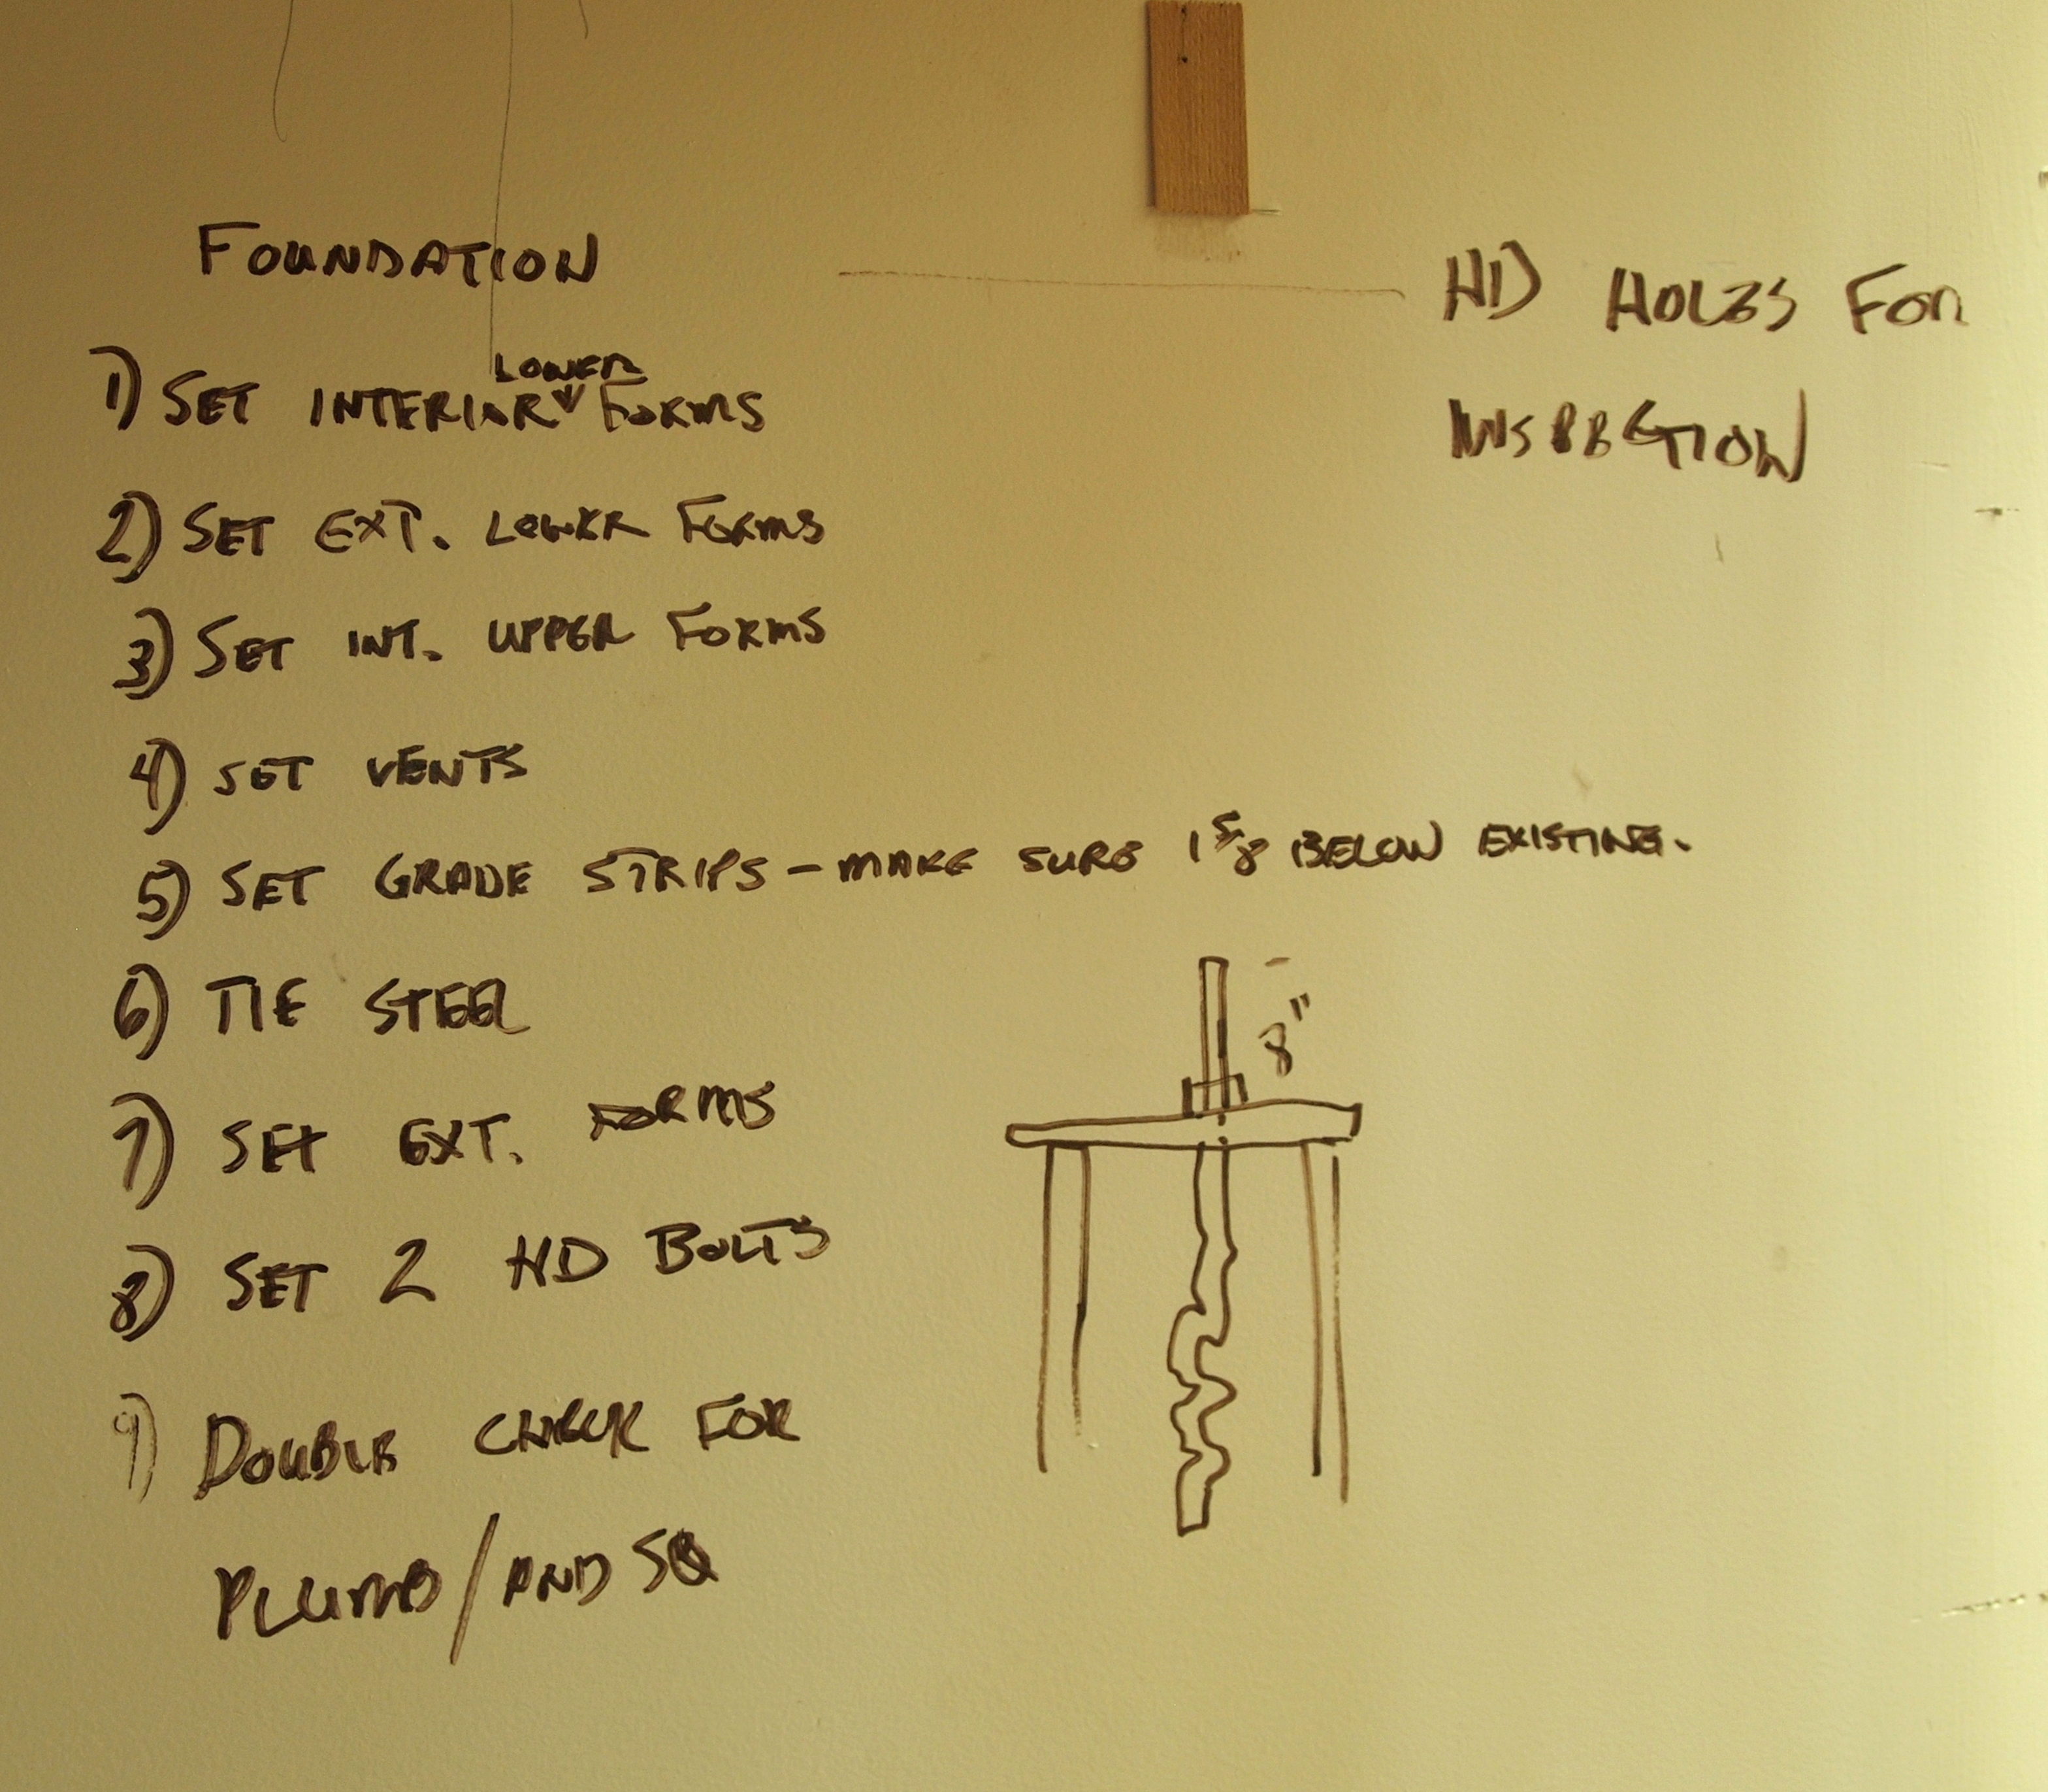 FOUNDATION
HD HOLES FOR
INSPECTION
1) SET INTERIOR LOWER FORMS
2) SET EXT. LOWER FORMS
3) SET INT. UPPER FORMS
4) SET VENTS
5) SET GRADE STRIPS - MAKE SURE 1 5/8 BELOW EXISTING.
6) TIE STEEL
8"
7) SET EXT. FORMS
8) SET 2 HD BOLTS
9) DOUBLE CHECK FOR
PLUMB / AND SQ